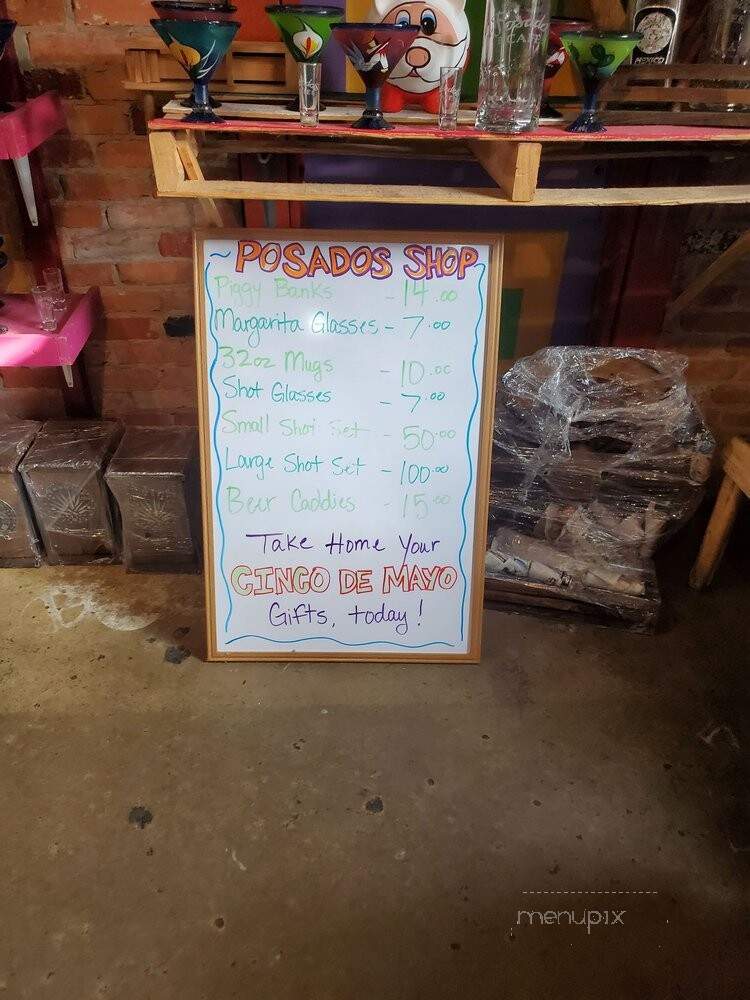 Posado's
CAFE
MEXICO
~ POSADOS SHOP
Piggy Banks - 14.00
Margarita Glasses - 7.00
32oz Mugs - 10.00
Shot Glasses - 7.00
Small Shot Set - 50.00
Large Shot Set - 100.00
Beer Caddies - 15.00
Take Home Your
CINCO DE MAYO
Gifts, today!
menupix